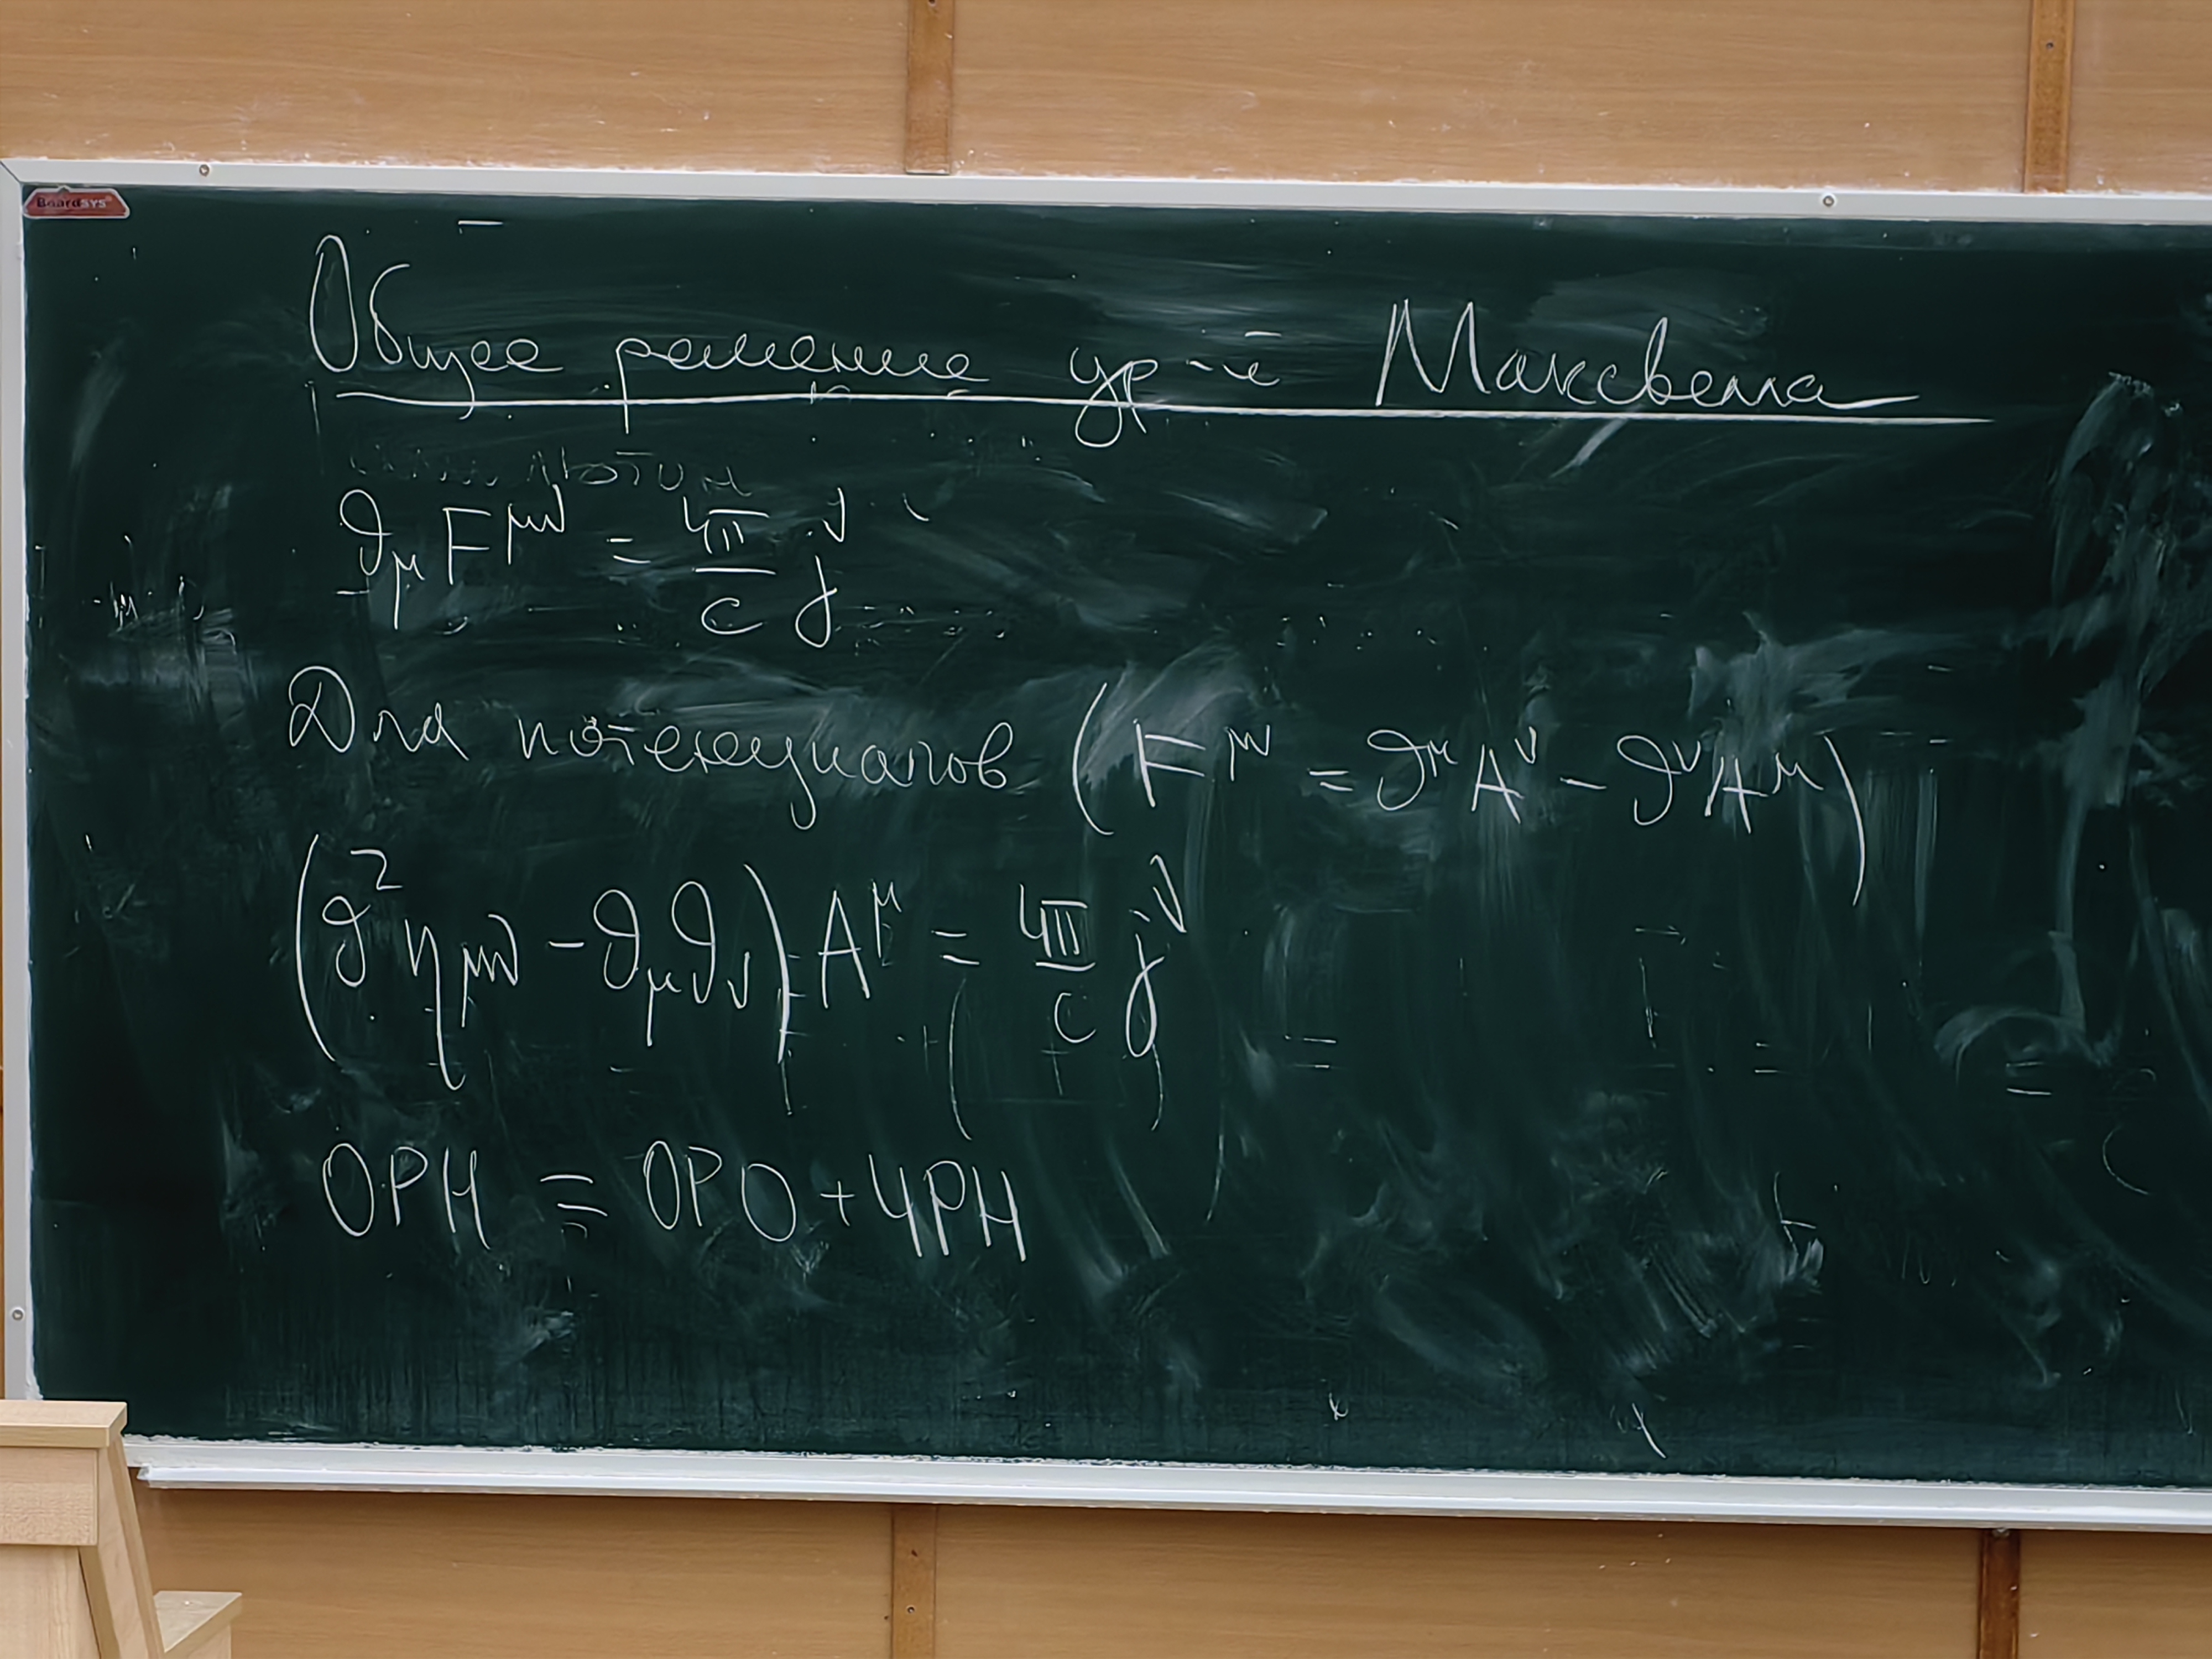 BoardSYS
Общее решение ур-й Максвелла
∂_μ F^{μν} = \frac{4π}{c} j^ν
Для потенциалов (F^{μν} = ∂^μ A^ν - ∂^ν A^μ)
(∂^2 η_{μν} - ∂_μ ∂_ν) A^μ = \frac{4π}{c} j^ν
ОРН = ОРО + ЧРН